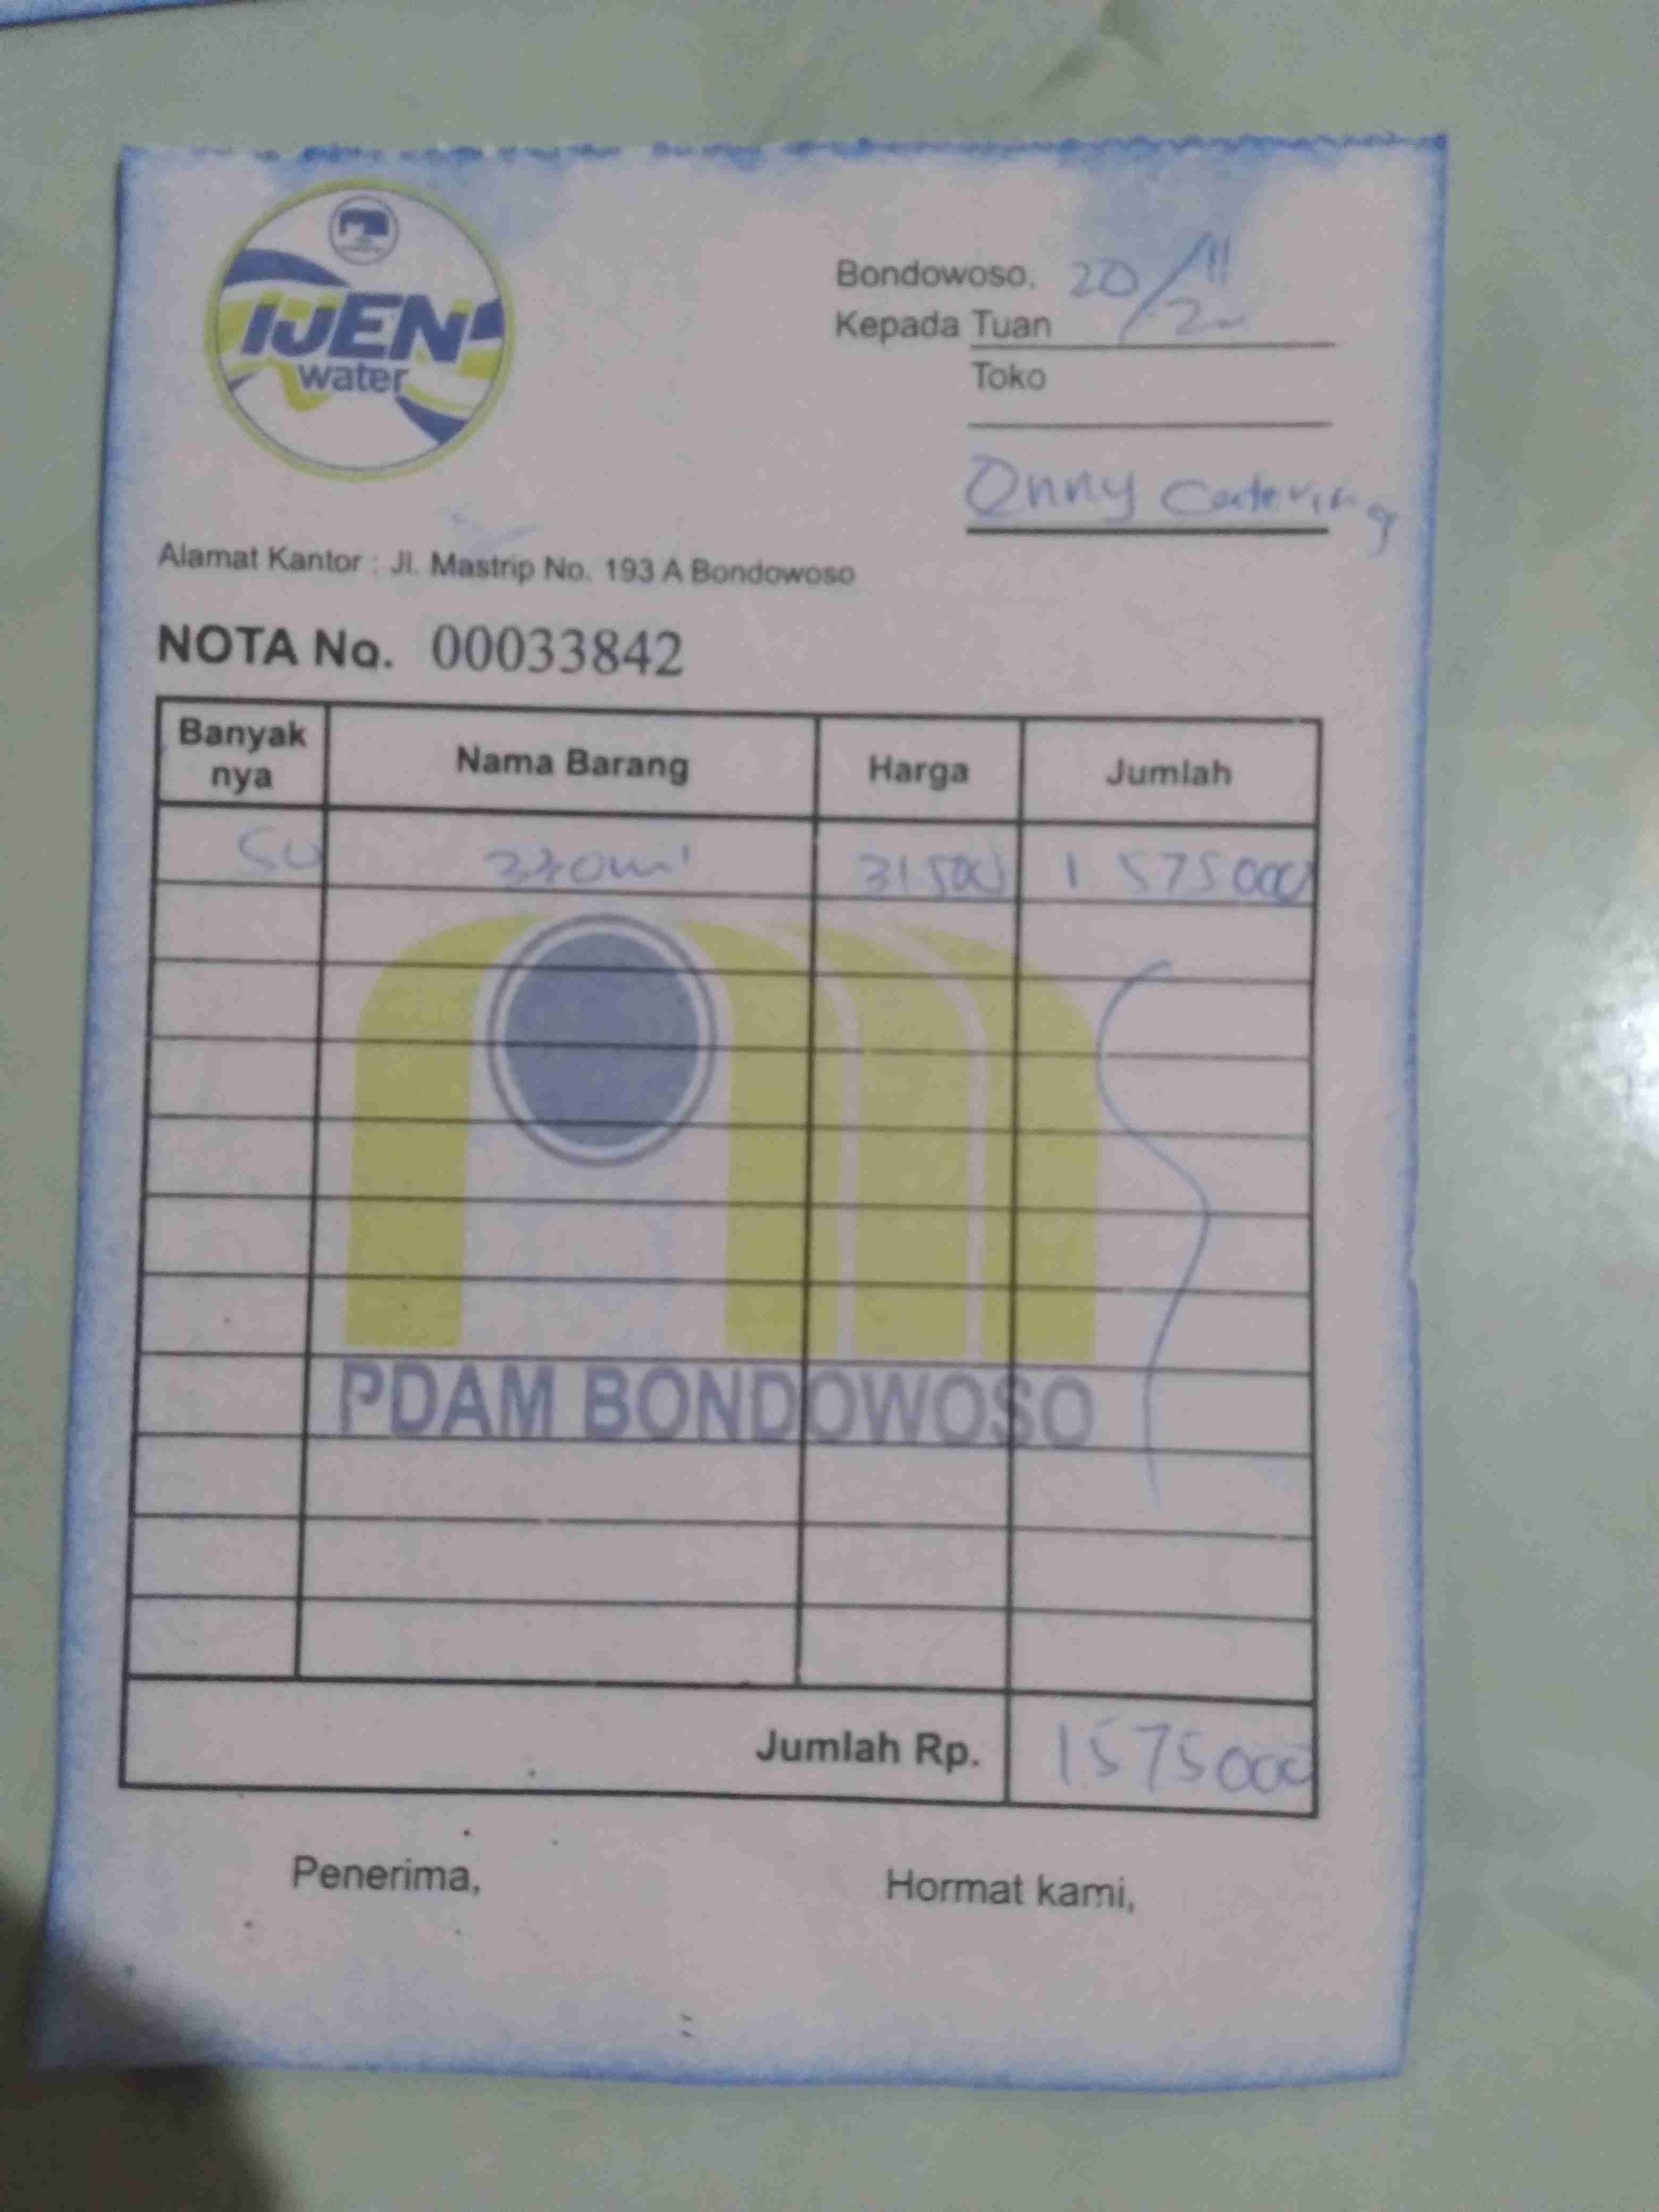 IJEN
water
Bondowoso, 20/11
Kepada Tuan
Toko
Onny Catering
Alamat Kantor : Jl. Mastrip No. 193 A Bondowoso
NOTA No. 00033842
Banyak nya Nama Barang Harga Jumlah
50 330ml 31500 1 575000
PDAM BONDOWOSO
Jumlah Rp. 1575000
Penerima, Hormat kami,